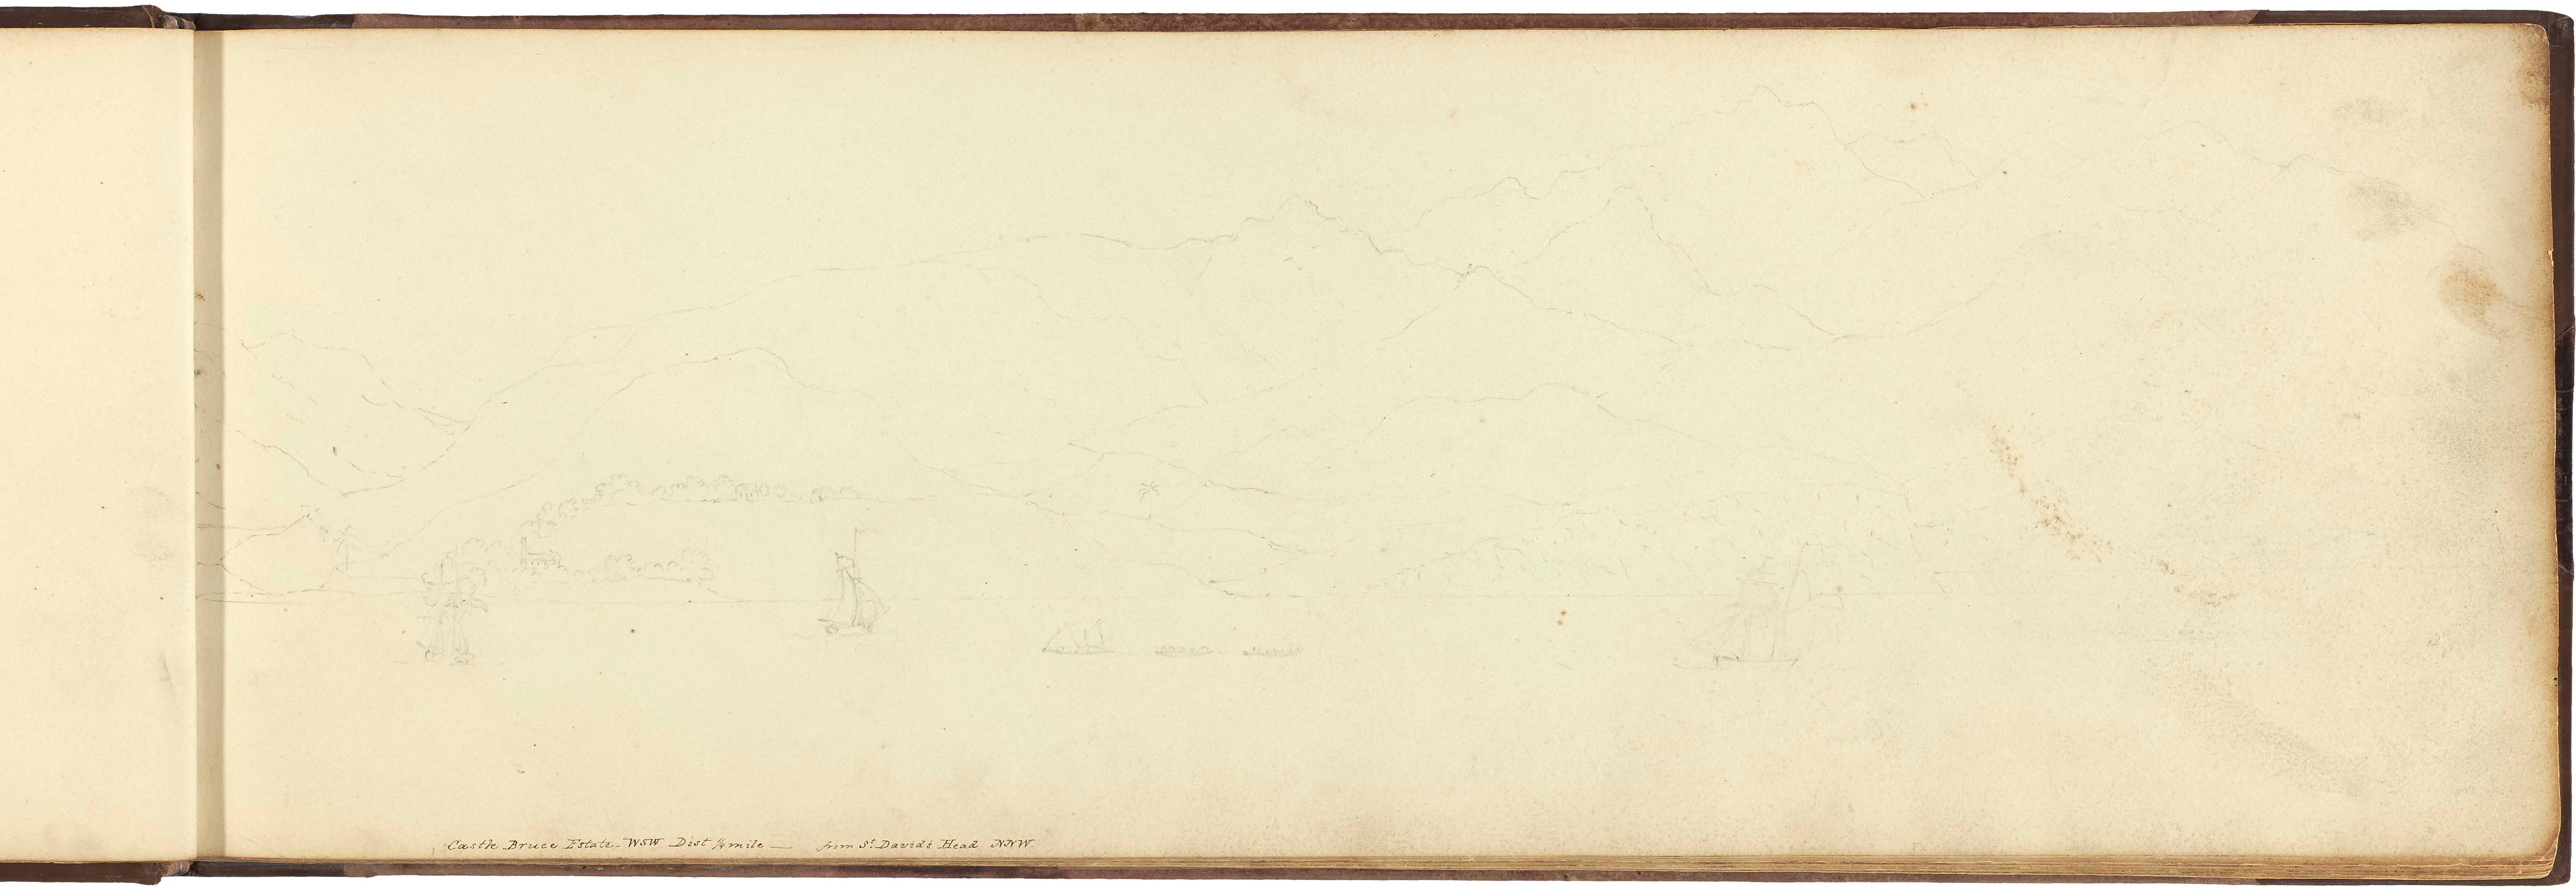 Castle Bruce Estate WSW Dist ¼ mile — from St. Davids Head NNW.